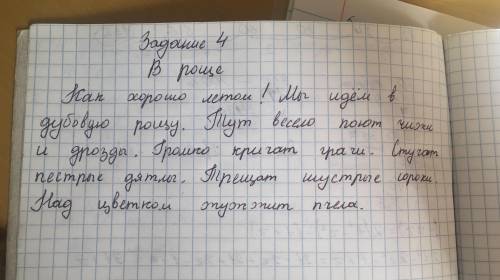 Задание 4
В роще
Как хорошо летом! Мы идём в
дубовую рощу. Тут весело поют чижи
и дрозды. Громко кричат грачи. Стучат
пестрые дятлы. Трещат шустрые сороки.
Над цветком жужжит пчела.